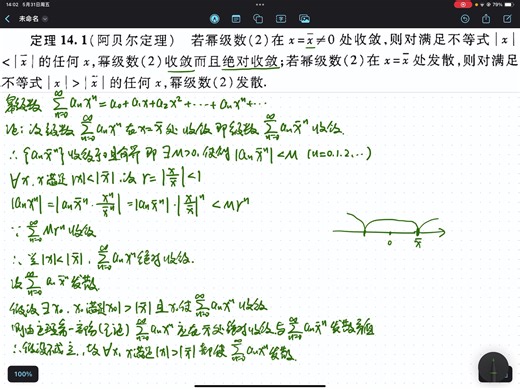 14:02 5月31日周五
79%
未命名
定理 14.1(阿贝尔定理) 若幂级数(2)在 x = x̄ ≠ 0 处收敛,则对满足不等式 | x |
< | x̄ | 的任何 x,幂级数(2)收敛而且绝对收敛;若幂级数(2)在 x = x̄ 处发散,则对满足
不等式 | x | > | x̄ | 的任何 x,幂级数(2)发散.
幂级数 ∑_{n=0}^{∞} aₙxⁿ = a₀ + a₁x + a₂x² + ··· + aₙxⁿ + ···
证: 设级数 ∑_{n=0}^{∞} aₙxⁿ 在 x = x̄ 处收敛 即级数 ∑_{n=0}^{∞} aₙx̄ⁿ 收敛.
∴ {aₙx̄ⁿ} 收敛于0且有界 即 ∃ M>0, 使得 |aₙx̄ⁿ| < M (n=0.1.2,···)
∀x, x满足 |x|<|x̄| 设 r = |x/x̄| < 1
|aₙxⁿ| = |aₙx̄ⁿ · xⁿ/x̄ⁿ| = |aₙx̄ⁿ| · |x/x̄|ⁿ < Mrⁿ
∵ ∑_{n=0}^{∞} Mrⁿ 收敛
∴ 当 |x|<|x̄|, ∑_{n=0}^{∞} aₙxⁿ 绝对收敛.
设 ∑_{n=0}^{∞} aₙx̄ⁿ 发散
假设 ∃ x₀, x₀满足 |x₀| > |x̄| 且 x₀ 使 ∑_{n=0}^{∞} aₙxⁿ 收敛
则由定理第一部分(已证) ∑_{n=0}^{∞} aₙxⁿ 应在 x̄ 处绝对收敛 与 ∑_{n=0}^{∞} aₙx̄ⁿ 发散矛盾
∴ 假设不成立, 故 ∀x, x满足 |x|>|x̄| 都使 ∑_{n=0}^{∞} aₙxⁿ 发散.
0 x̄
100%